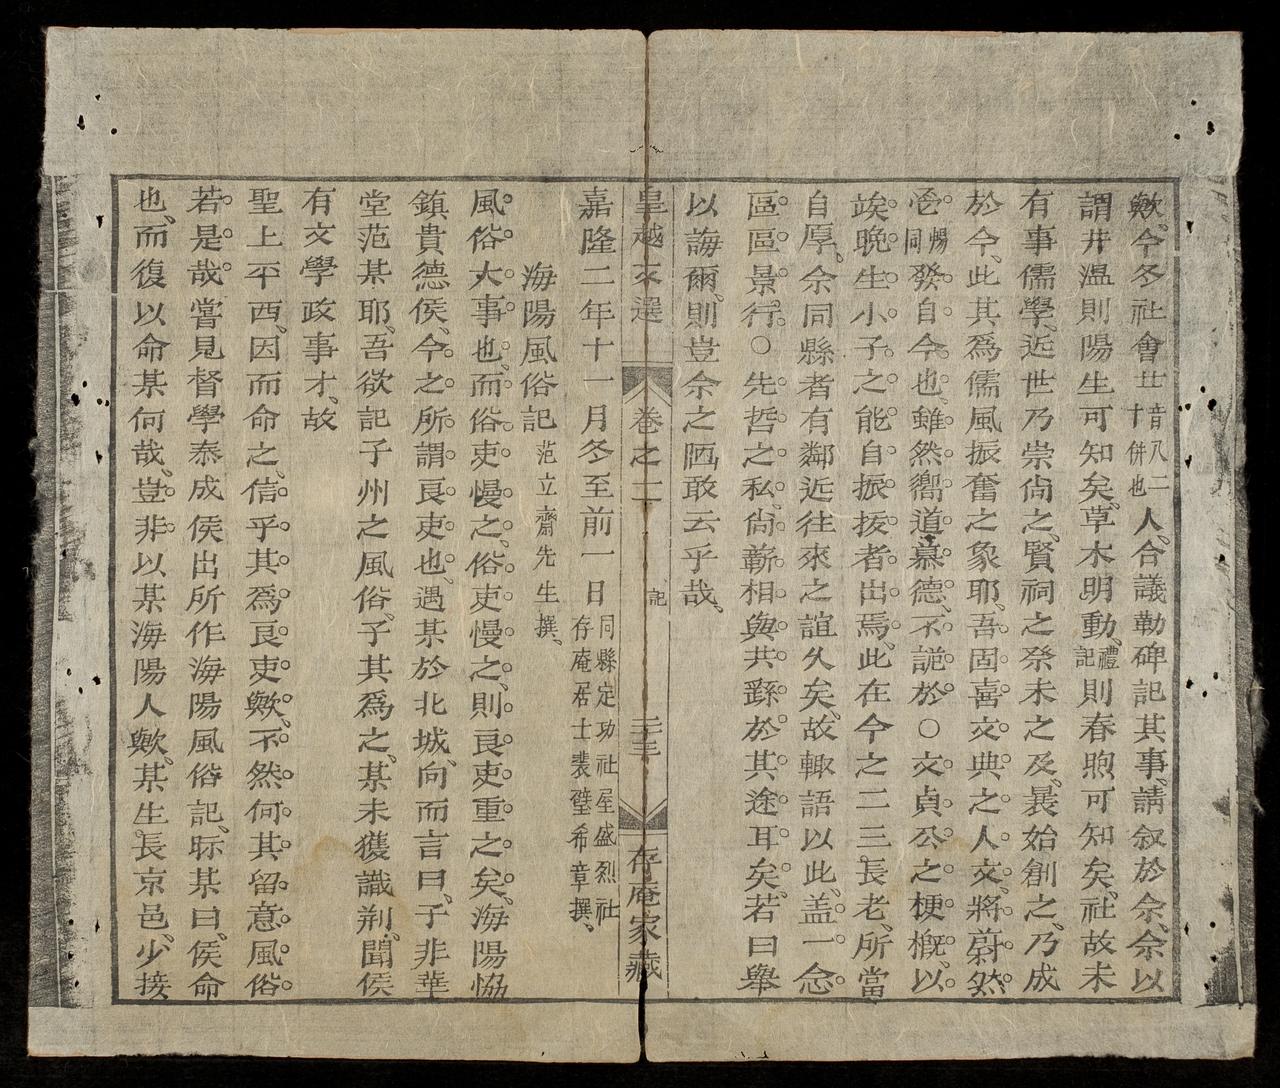 歟、今冬社會廿音入二十併也人、合議勒碑記其事、請叙於余、余以
謂井溫則陽生可知矣、草木明動、禮記則春煦可知矣、社故未
有事儒學、近世乃崇尙之、賢祠之癸未之及、曩始創之、乃成
於今、此其爲儒風振奮之象耶、吾固喜文典之人文、將蔚然
鬯暢同發自今也、雖然嚮道慕德、不詭於○文貞公之梗槪、以
竢晩生小子之能自振拔者出焉、此在今之二三長老、所當
自厚、余同縣者有鄰近往來之誼久矣、故輙語以此、盖一念
區區景行○先哲之私、尙蘄相與共繇於其途耳矣、若曰舉
以誨爾、則豈余之陋敢云乎哉、
皇越文選 卷之二 記 三十三 存庵家藏
嘉隆二年十一月冬至前一日 同縣定功社屋盛烈社存庵居士裴璧希章撰、
海陽風俗記 范立齋先生撰、
風俗大事也、而俗吏慢之、俗吏慢之、則良吏重之矣、海陽協
鎮貴德侯、今之所謂良吏也、遇某於北城、向而言曰、子非華
堂范某耶、吾欲記子州之風俗、子其爲之、某未獲識荊、聞侯
有文學政事才、故
聖上平西、因而命之、信乎其爲良吏歟、不然何其留意風俗
若是哉、嘗見督學泰成侯出所作海陽風俗記、眎某曰、侯命
也、而復以命某何哉、豈非以某海陽人歟、某生長京邑、少接